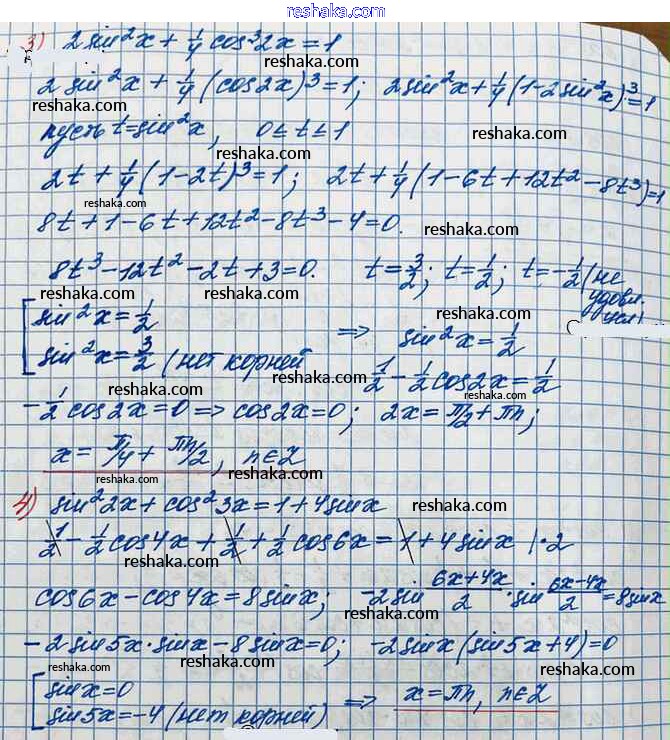 reshaka.com
3) 2sin²x + 1/4 cos³2x = 1
reshaka.com
2 sin²x + 1/4 (cos2x)³ = 1; 2sin²x + 1/4 (1-2sin²x)³ = 1
reshaka.com
пусть t = sin²x, 0 ≤ t ≤ 1
reshaka.com reshaka.com
2t + 1/4 (1-2t)³ = 1; 2t + 1/4 (1-6t+12t²-8t³) = 1
reshaka.com
8t + 1 - 6t + 12t² - 8t³ - 4 = 0.
reshaka.com
8t³ - 12t² - 2t + 3 = 0. t = 3/2; t = 1/2; t = -1/2 (не удовл. усл)
reshaka.com reshaka.com
[ sin²x = 1/2
sin²x = 3/2 (нет корней ⇒ sin²x = 1/2
reshaka.com reshaka.com
1/2 - 1/2 cos2x = 1/2
reshaka.com reshaka.com
-1/2 cos2x = 0 ⇒ cos2x = 0; 2x = π/2 + πn;
reshaka.com
x = π/4 + πn/2, n∈Z
reshaka.com reshaka.com
4) sin²2x + cos²3x = 1 + 4sinx
reshaka.com
1/2 - 1/2 cos4x + 1/2 + 1/2 cos6x = 1 + 4sinx |·2
reshaka.com reshaka.com
cos6x - cos4x = 8sinx; -2sin (6x+4x)/2 · sin (6x-4x)/2 = 8sinx
reshaka.com
-2sin5x·sinx - 8sinx = 0; -2sinx(sin5x+4) = 0
reshaka.com reshaka.com
[ sinx = 0
sin5x = -4 (нет корней) ⇒ x = πn, n∈Z
reshaka.com reshaka.com
reshaka.com